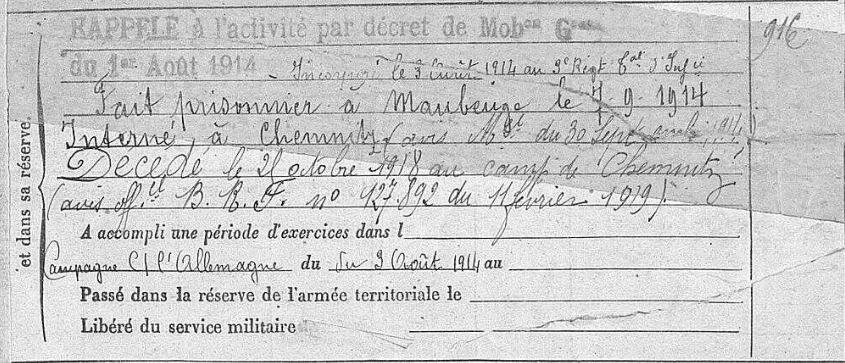 RAPPELÉ à l'activité par décret de Mobon Gale
du 1er Août 1914 - Incorporé le 3 Août 1914 au 3e Régt d'Infie
916
Fait prisonnier à Maubeuge le 7. 9. 1914
Interné à Chemnitz (avis Mel du 30 Sept
Décédé le 21 octobre 1918 au camp de Chemnitz
(avis offel B. R. F. no 127.892 du 11 février 1919).
et dans sa réserve.
A accompli une période d'exercices dans l
Campagne C/ l'Allemagne du du 3 Août 1914 au
Passé dans la réserve de l'armée territoriale le
Libéré du service militaire